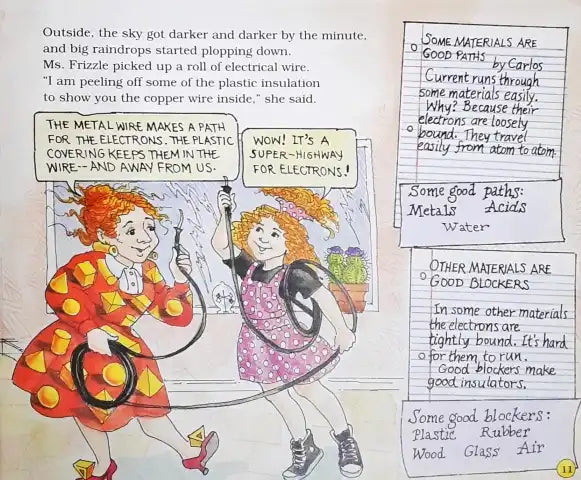 Outside, the sky got darker and darker by the minute,
and big raindrops started plopping down.
Ms. Frizzle picked up a roll of electrical wire.
"I am peeling off some of the plastic insulation
to show you the copper wire inside," she said.
THE METAL WIRE MAKES A PATH
FOR THE ELECTRONS. THE PLASTIC
COVERING KEEPS THEM IN THE
WIRE--AND AWAY FROM US.
WOW! IT'S A
SUPER-HIGHWAY
FOR ELECTRONS!
SOME MATERIALS ARE
GOOD PATHS
by Carlos
Current runs through
some materials easily.
Why? Because their
electrons are loosely
bound. They travel
easily from atom to atom.
Some good paths:
Metals Acids
Water
OTHER MATERIALS ARE
GOOD BLOCKERS
In some other materials
the electrons are
tightly bound. It's hard
for them to run.
Good blockers make
good insulators.
Some good blockers:
Plastic Rubber
Wood Glass Air
11